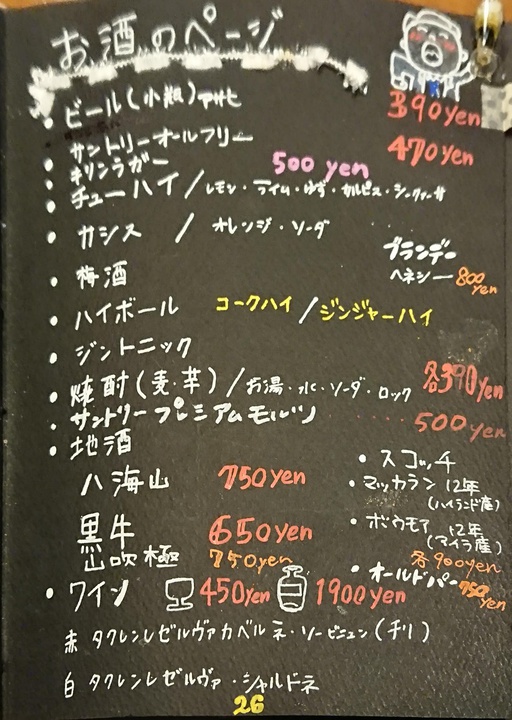 お酒のページ
・ビール(小瓶)アサヒ 390yen
・サントリーオールフリー 470yen
・キリンラガー 500 yen
・チューハイ/レモン・ライム・ゆず・カルピス・シークァーサ
・カシス / オレンジ・ソーダ
ブランデー
ヘネシー 800yen
・梅酒
・ハイボール コークハイ/ジンジャーハイ
・ジントニック
・焼酎(麦・芋)/お湯・水・ソーダ・ロック 各390yen
・サントリー プレミアムモルツ ‥‥ 500yen
・地酒
八海山 750yen
黒牛 650yen
山吹極 750yen
・スコッチ
・マッカラン 12年
(ハイランド産)
・ボウモア 12年
(アイラ産)
各900yen
・オールドパー 750yen
・ワイン 450yen 1900yen
赤 タクレンレゼルヴァカベルネ・ソービニュン(チリ)
白 タクレンレゼルヴァ・シャルドネ
26